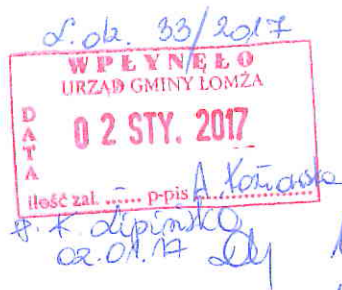 L.dz. 33/2017
WPŁYNĘŁO
URZĄD GMINY ŁOMŻA
DATA
02 STY. 2017
ilość zał. ...... p-pis A.
p. K. Lipińska
02.01.17